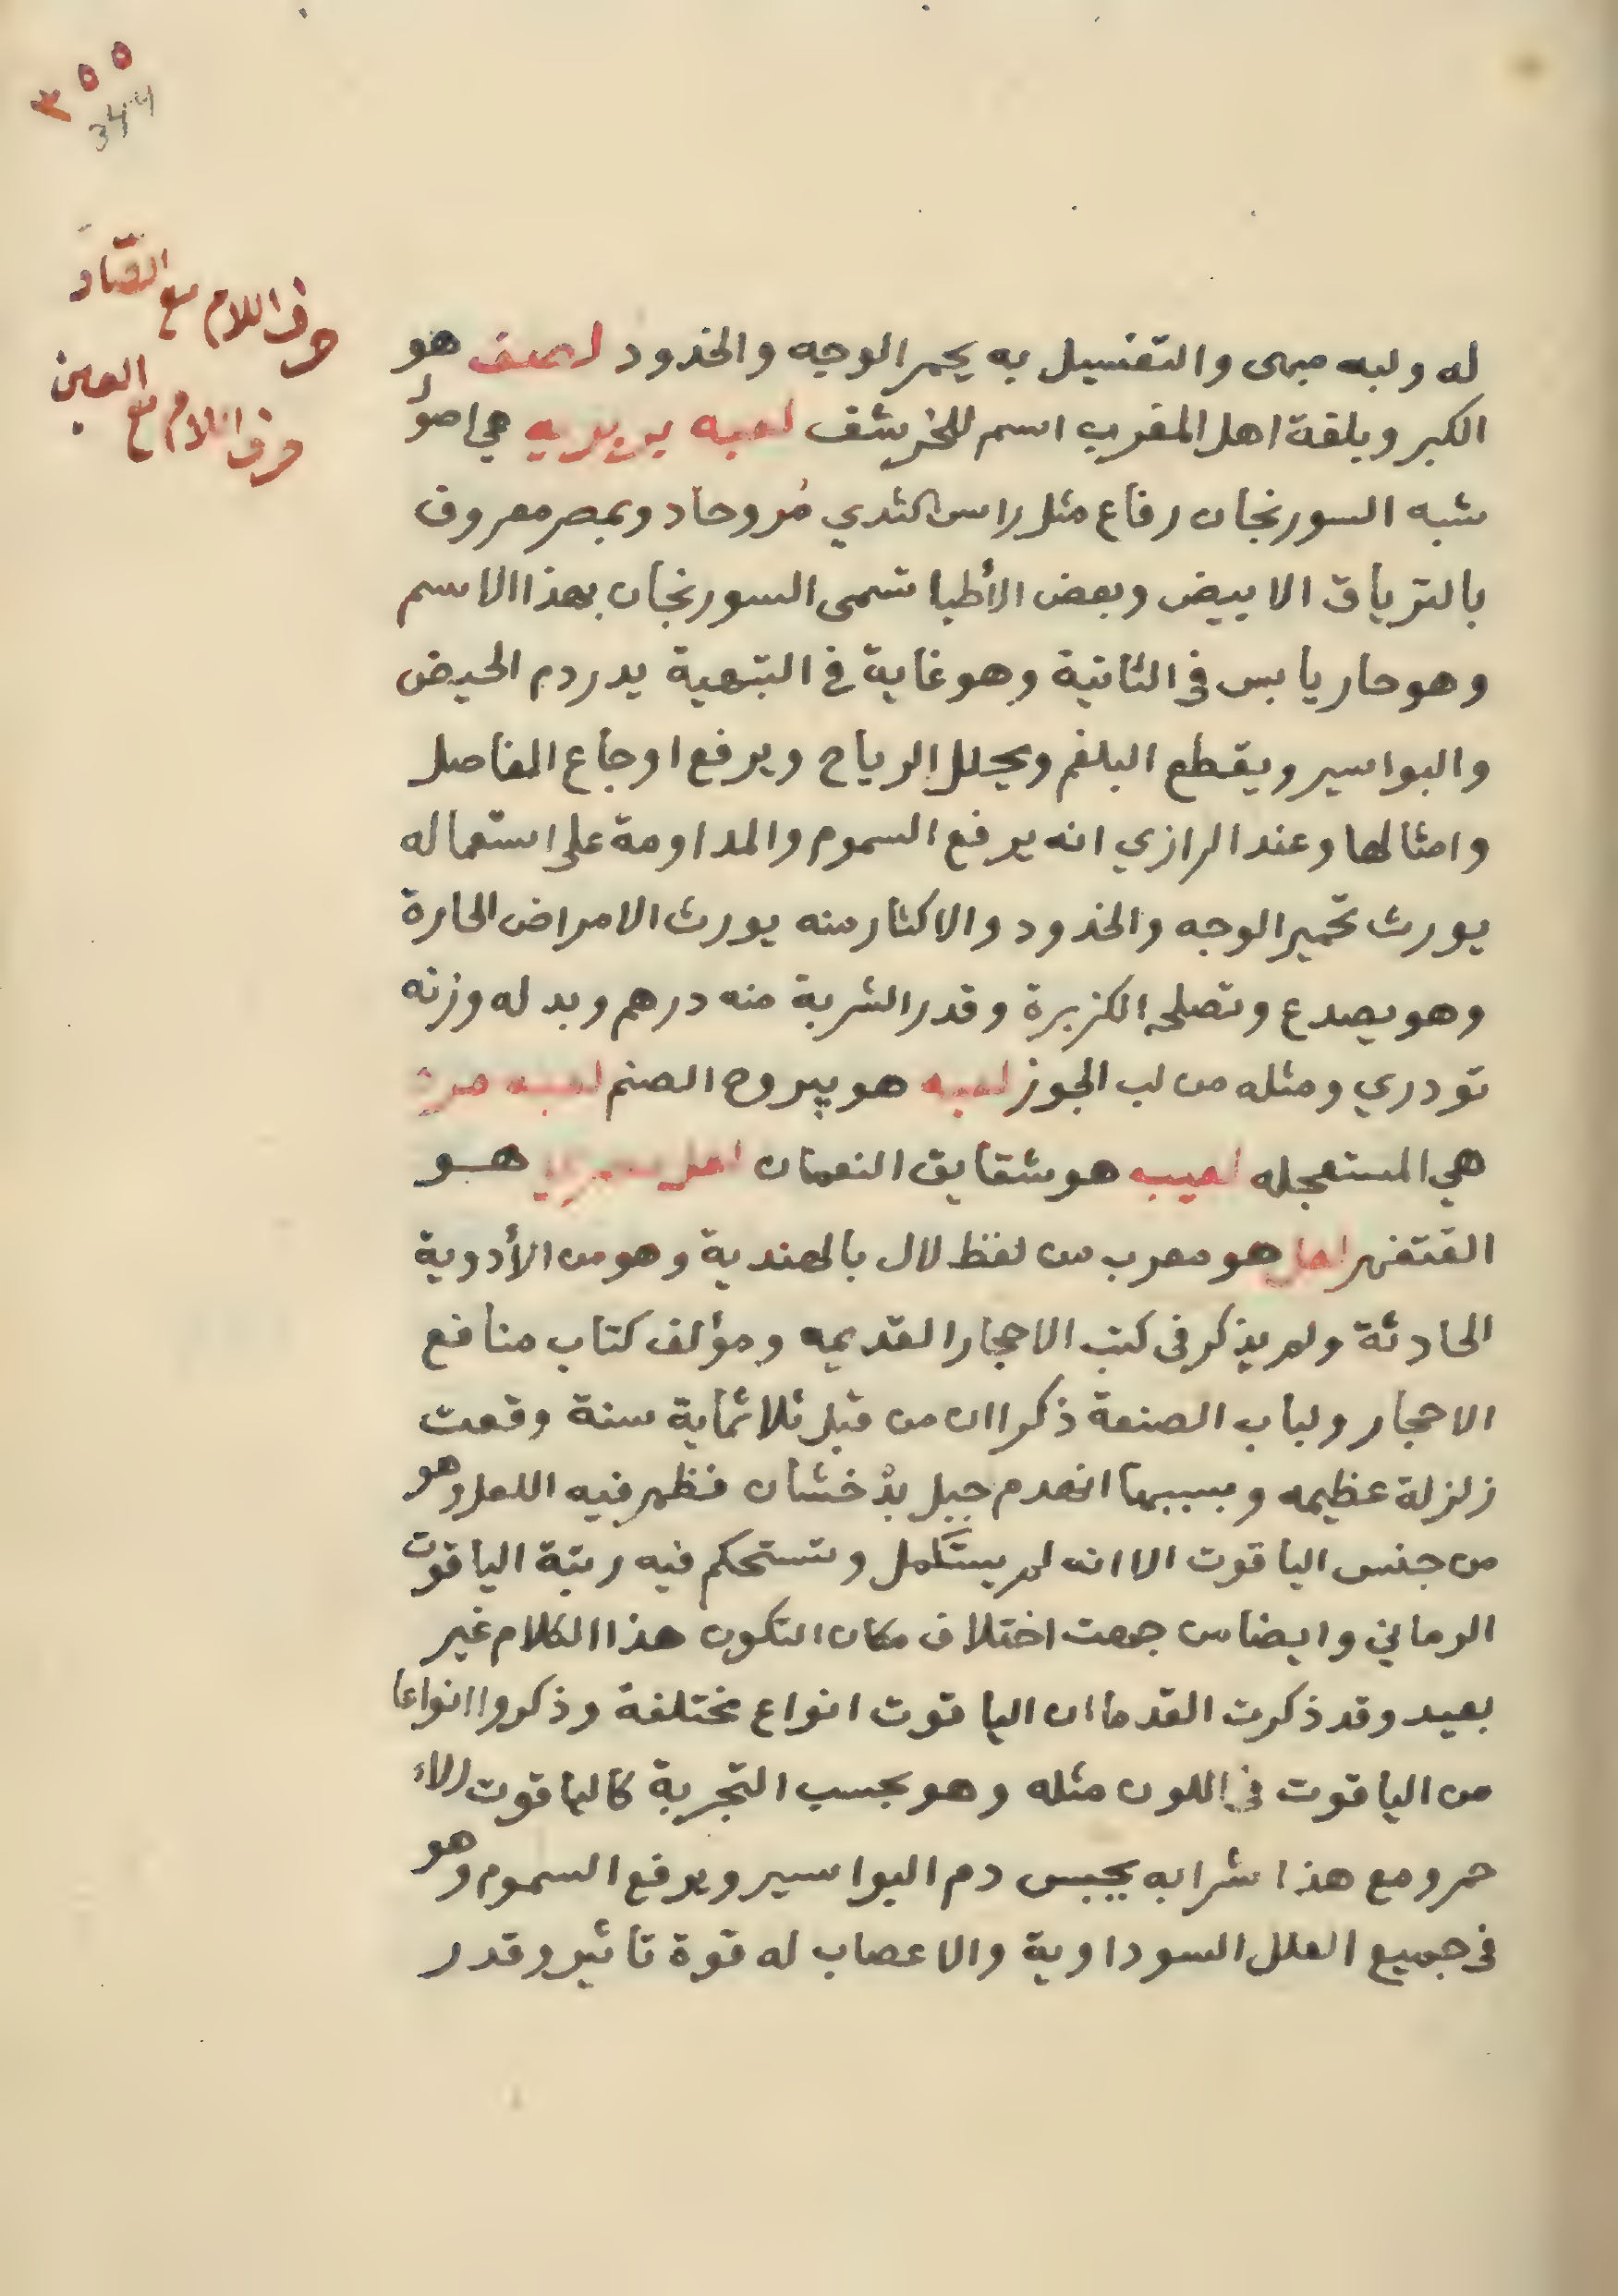 ٣٥٥
344
حرف اللام مع الصاد
حرف اللام مع العين
له ولبه مبهى والتغسيل به يحمر الوجه والخدود لصف هو
الكبر وبلغة اهل المغرب اسم للخرشف لعبه بربريه هي اصول
شبه السورنجان رفاع مثل راس الثدي مُر وحاد وبمصر معروف
بالترياق الابيض وبعض الأطبا تسمى السورنجان بهذا الاسم
وهو حار يابس في الثانية وهو غاية في التبهية يدر دم الحيض
والبواسير ويقطع البلغم ويحلل الرياح ويرفع اوجاع المفاصل
وامثالها وعند الرازي انه يرفع السموم والمداومة على استعماله
يورث تحمير الوجه والخدود والاكثار منه يورث الامراض الحارة
وهو يصدع وتصلحه الكزبرة وقدر الشربة منه درهم وبدله وزنه
تودري ومثله من لب الجوز لعبه هو يبروح الصنم لعبه مرة
هي المستعجله لعيبه هو شقايق النعمان لعل هو
القتفهر لعل هو معرب من لفظ لال بالهندية وهو من الأدوية
الحادثة ولم يذكر في كتب الاحجار القديمه ومؤلف كتاب منافع
الاحجار ولباب الصنعة ذكرا ان من قبل ثلاثماية سنة وقعت
زلزلة عظيمه وبسببها انهدم جبل بدْخشان فظهر فيه اللعل وهو
من جنس الياقوت الا انه لم يستكمل وتستحكم فيه رتبة الياقوت
الرماني وايضا من جهت اختلاف مكان التكون هذا الكلام غير
بعيد وقد ذكرت القدما ان الياقوت انواع مختلفة وذكروا انواعا
من الياقوت في اللون مثله وهو بحسب التجربة كالياقوت الاء
حمر ومع هذا شرابه يحبس دم البواسير ويرفع السموم وهو
في جميع العلل السوداوية والاعصاب له قوة تاثير وقدر